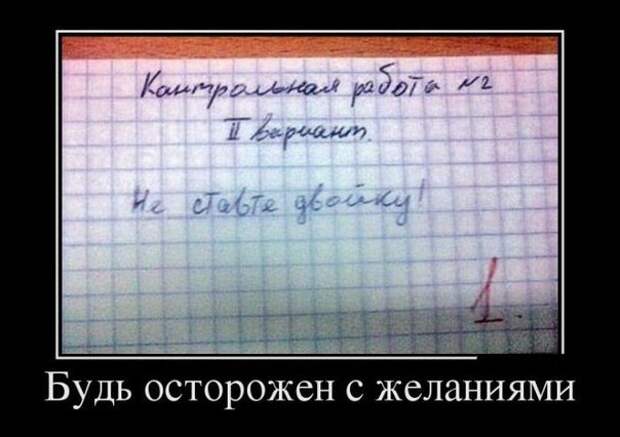 Контрольная работа №2
II вариант.
Не ставте двойку!
1.
Будь осторожен с желаниями